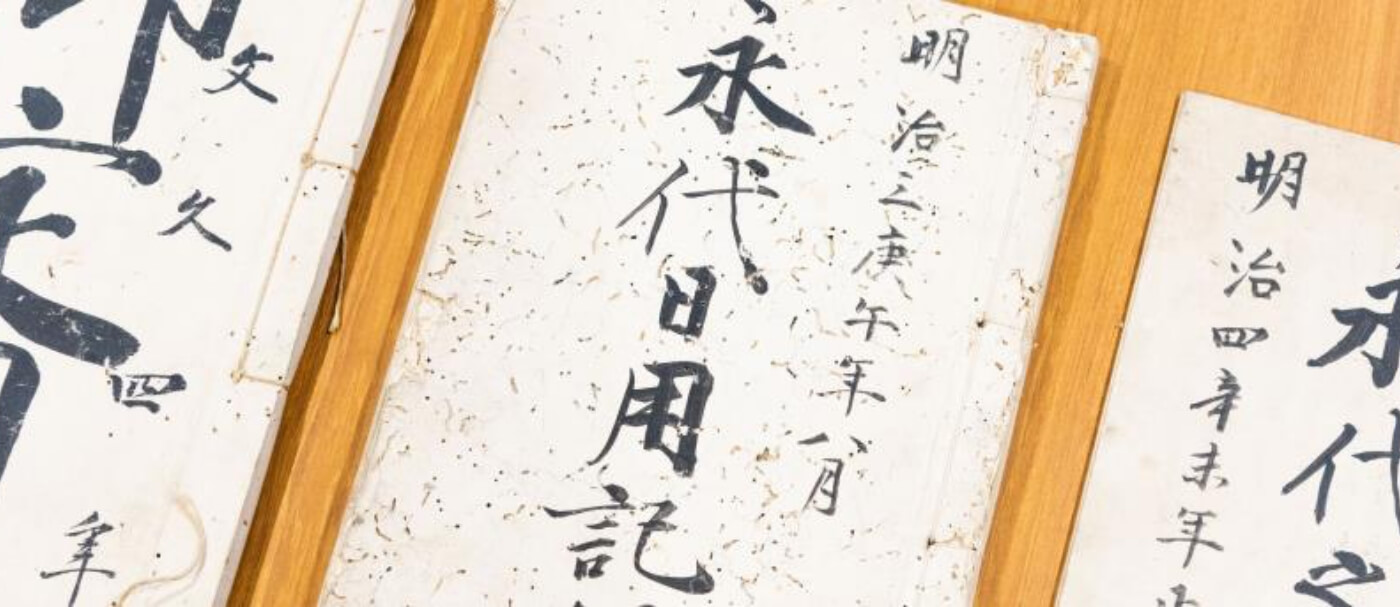 明治四辛未年
永代
明治三庚午年八月
永代日用記
文久四年